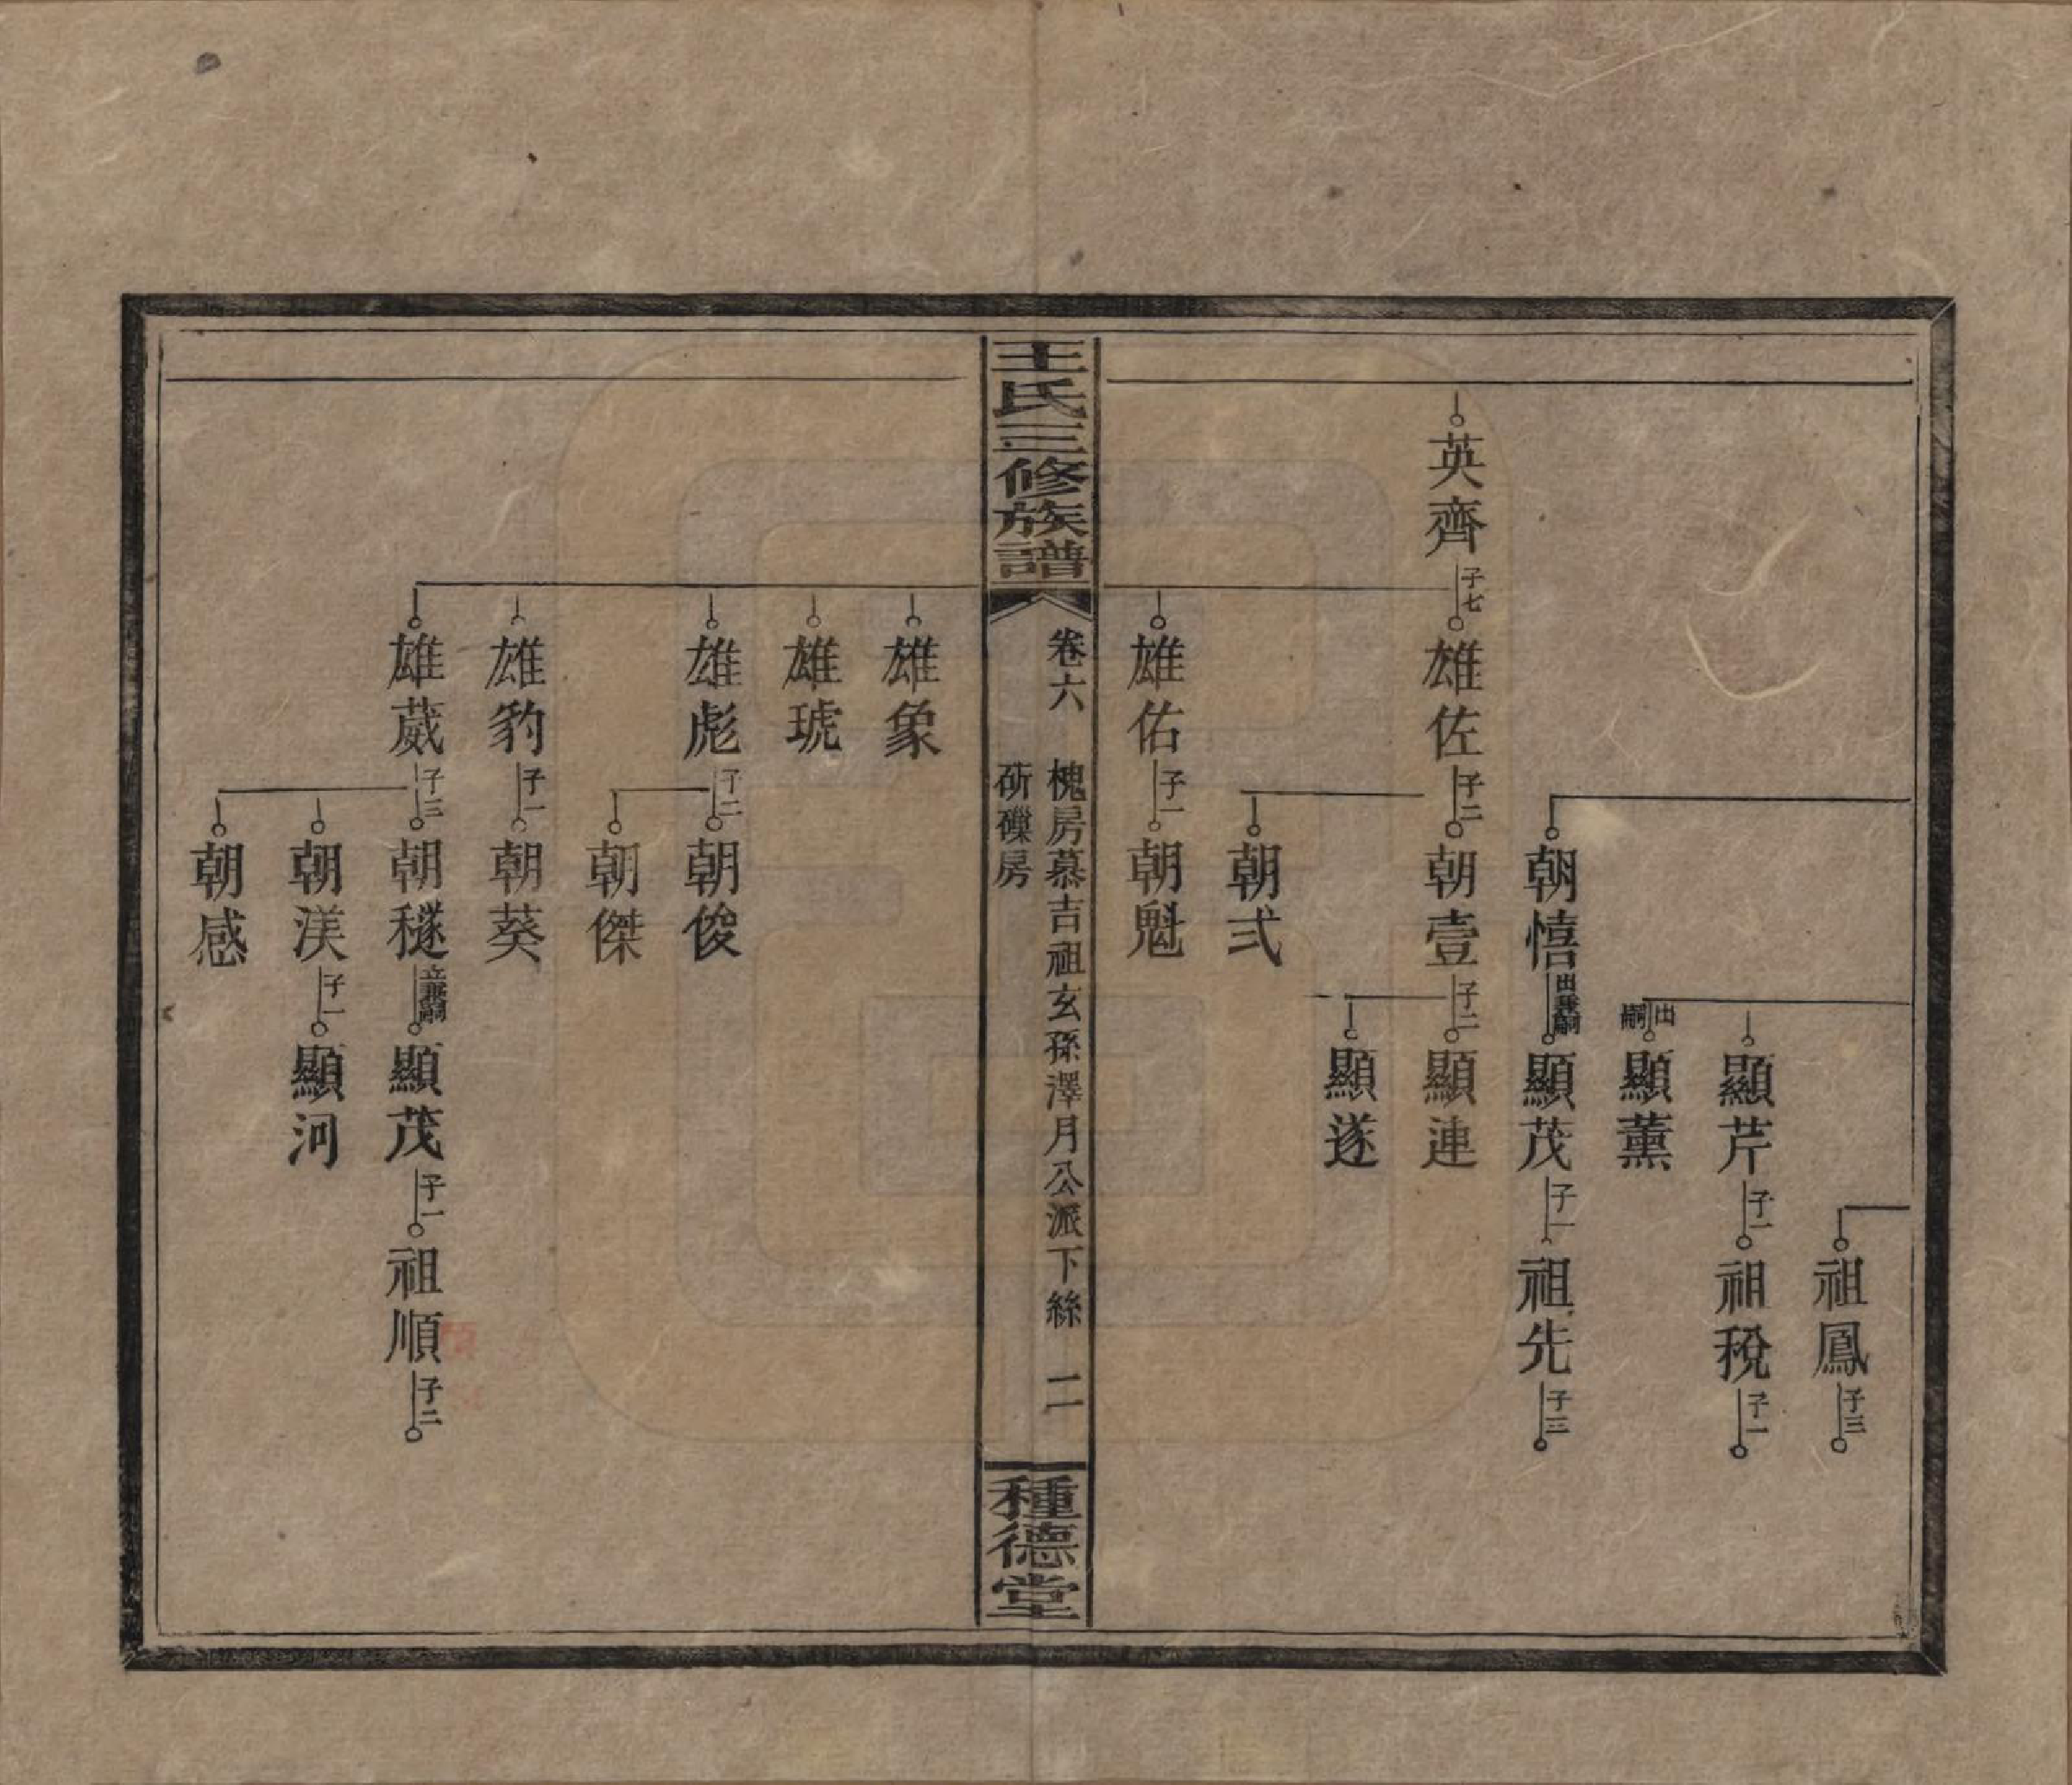 祖鳳 子三
顯芹 子一 祖稅 子一
出嗣 顯薰
朝憘 出兼嗣 顯茂 子一 祖先 子三
英齊 子七 雄佐 子二 朝壹 子二 顯連
顯遂
朝弍
雄佑 子一 朝魁
王氏三修族譜 卷六 槐房慕吉祖玄孫澤月公派下絲 二 種德堂
房
雄象
雄琥
雄彪 子二 朝俊
朝傑
雄豹 子一 朝葵
雄葳 子三 朝穟 立兼嗣 顯茂 子一 祖順 子二
朝渼 子一 顯河
朝感